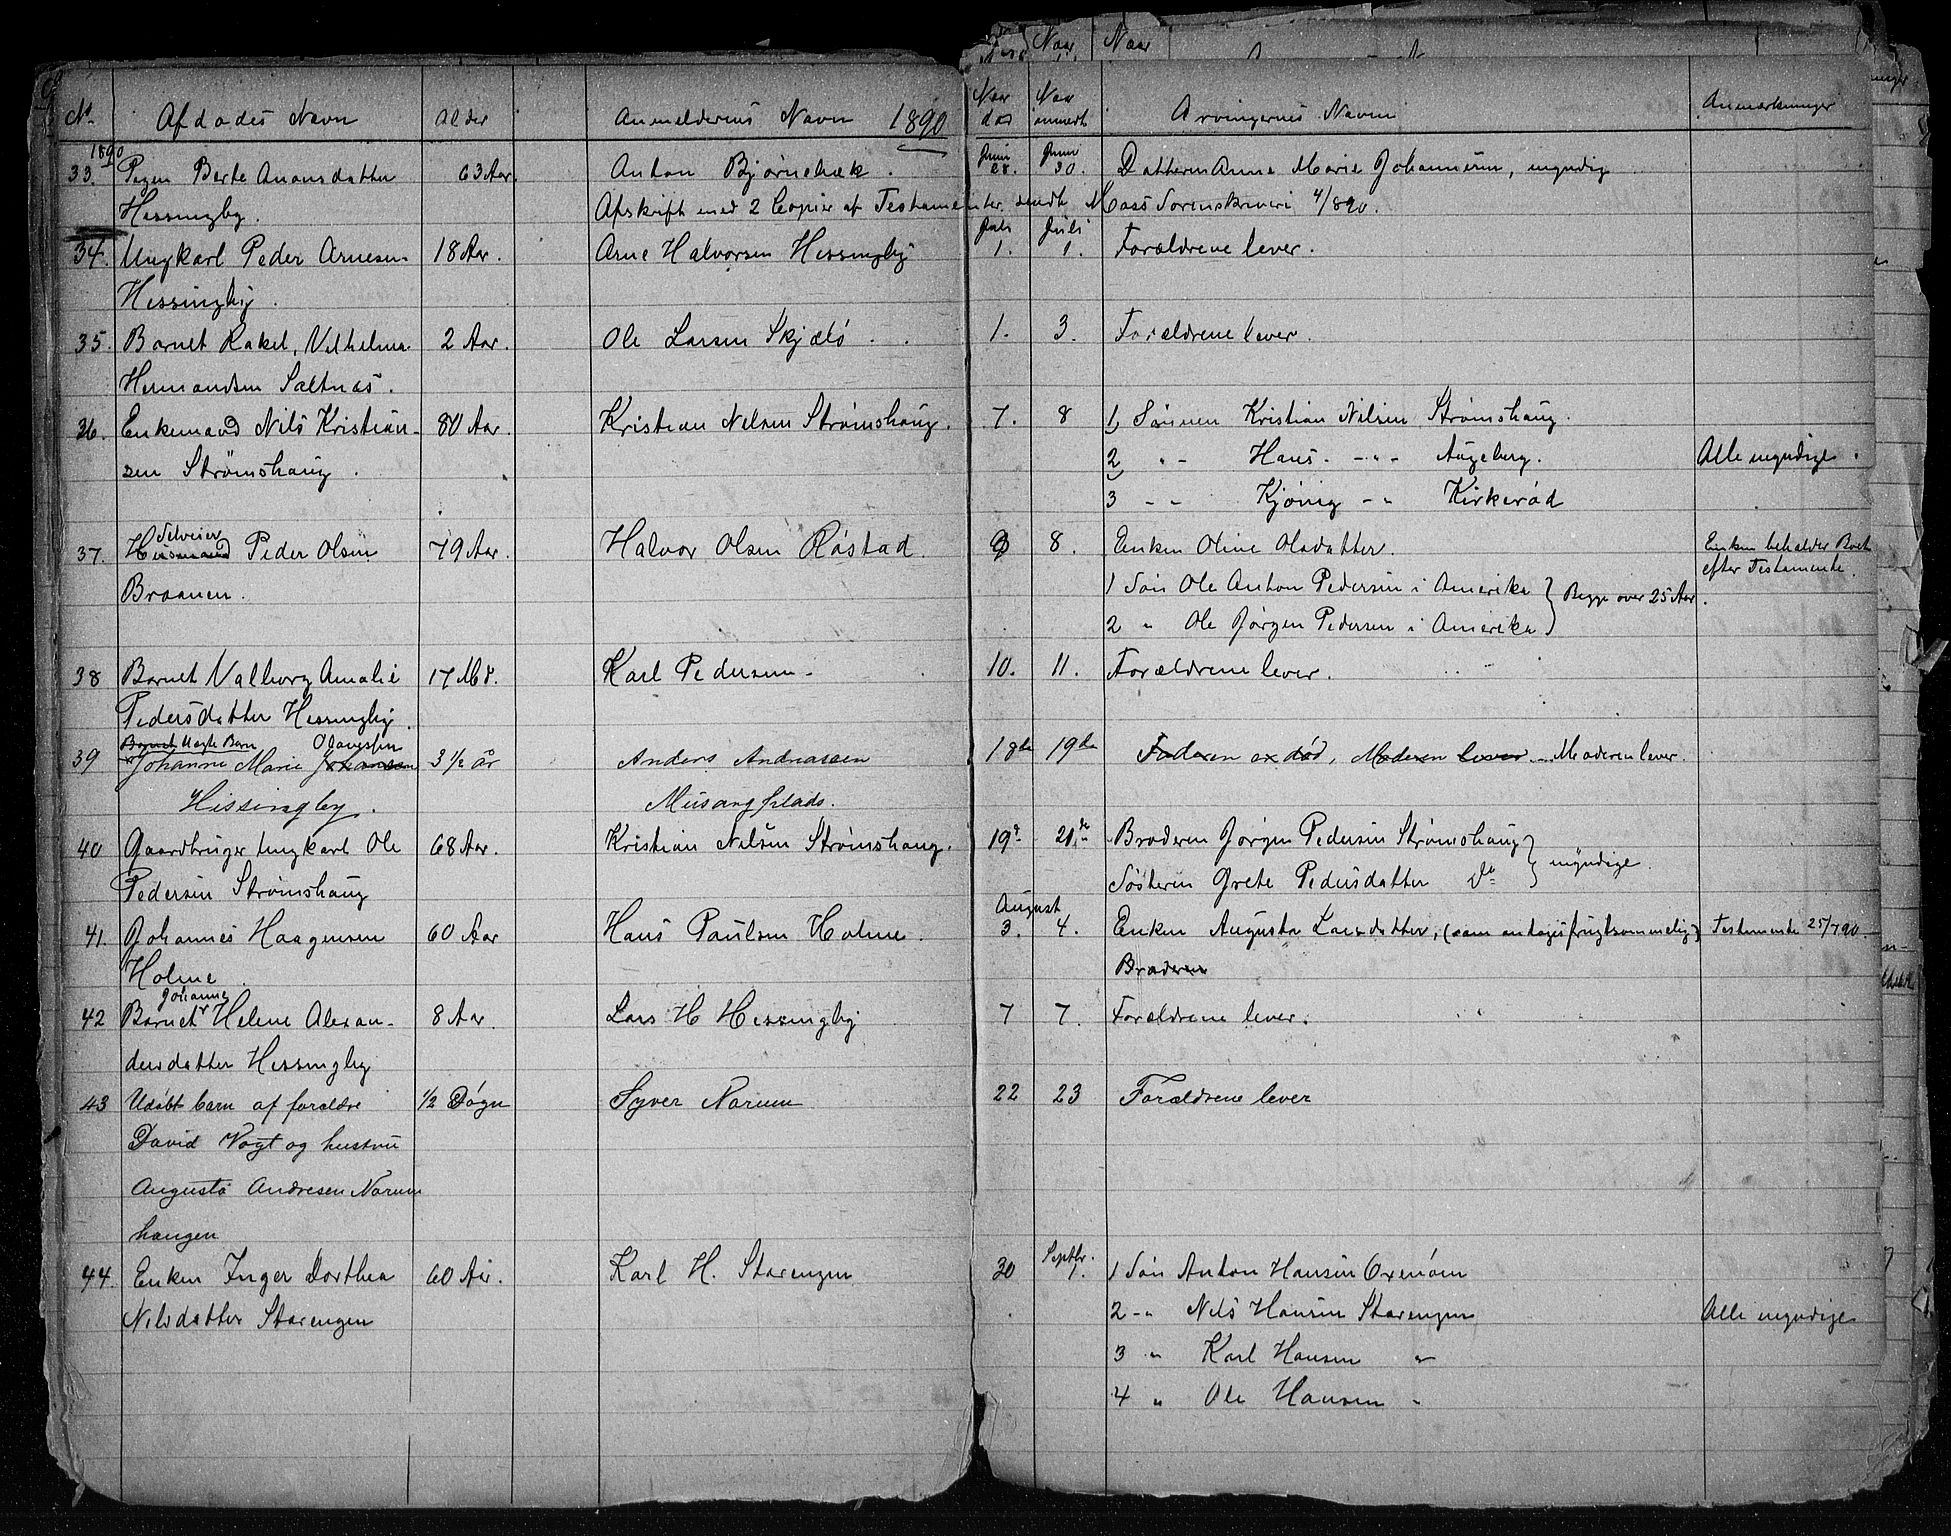 Naar Naar
No. Afdødes Navn Alder Anmelderens Navn 1890 Naar død Naar anmeldt Arvingernes Navn Anmærkninger
1890 Juni Juni
33. Pigen Berte Anonsdatter 63 Aar. Anton Bjørnebæk. 28. 30. Datteren Anne Marie Johannesen, myndig
Hessingby. Afskrift med 2 Copier af Testamenter sendt Moss Sorenskriveri 4/8 90.
Juli Juli
34. Ungkarl Peder Arnesen 18 Aar. Arne Halvorsen Hessingby 1. 1. Forældrene lever.
Hessingby.
35. Barnet Rakel, Vilhelma 2 Aar. Ole Larsen Skjælø 1. 3. Forældrene lever.
Hermandsen Saltnæs.
36. Enkemand Nils Kristian- 80 Aar. Kristian Nelsen Strømshaug. 7. 8 1, Sønnen Kristian Nilsen Strømshaug.
sen Strømshaug. 2, " - Hans - " - Augeberg. Alle myndige.
3 - - Kjønig - " Kirkerød
Selveier
37. Husmand Peder Olsen 79 Aar. Halvor Olsen Røstad. 8. Enken Oline Olsdatter. Enken beholder Boet
efter Testamente.
Braanen. 1 Søn Ole Anton Pedersen i Amerika } Begge over 25 Aar.
2 " Ole Jørgen Pedersen i Amerika }
38 Barnet Valborg Amalie 17 Md. Karl Pedersen. 10. 11. Forældrene lever.
Pedersdatter Hessingby.
Barnet Uægte Barn Olavesen
39 Johanne Marie Johansen 3 1/2 år Anders Andreassen 18de 19de Faderen er død, Moderen lever - Moderen lever.
Hissingby. Musangplads.
40 Gaardbruger Ungkarl Ole 68 Aar. Kristian Nelsen Strømshaug. 19de 21de Broderen Jørgen Pedersen Strømshaug } myndige.
Pedersen Strømshaug Søsteren Grete Pedersdatter do }
August
41. Johannes Haagensen 60 Aar Hans Paulsen Holme. 3. 4. Enken Augusta Larsdatter, (som antages frugtsommelig) Testamente 25/7 90.
Holme. Broderen
Johanne
42 Barnet Helene Alexan- 8 Aar. Lars H Hessingby 7 7. Forældrene lever.
dersdatter Hessingby
43 Udøbt barn af forældre 1/2 Døgn Syver Norum 22 23 Forældrene lever
David Vogt og hustru
Augusta Andresen Norum
haugen
Septbr.
44. Enken Inger Dorthea 60 Aar. Karl H. Starengen 30 1. 1 Søn Anton Hansen Oxenøen
Nilsdatter Starengen 2 - " Nils Hansen Starengen Alle myndige
3 " Karl Hansen "
4 " Ole Hansen "